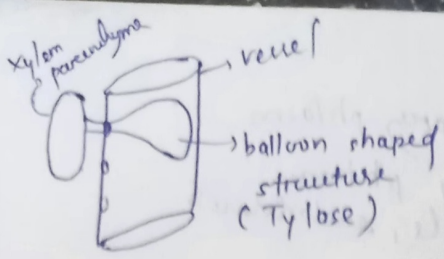 xylem
parenchyma
vessel
balloon shaped
structure
(Tylose)